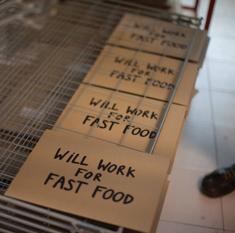 WILL WORK
FOR
FAST FOOD
WILL WORK
FOR
FAST FOOD
WILL WORK
FOR
FAST FOOD
WILL WORK
FOR
FAST FOOD